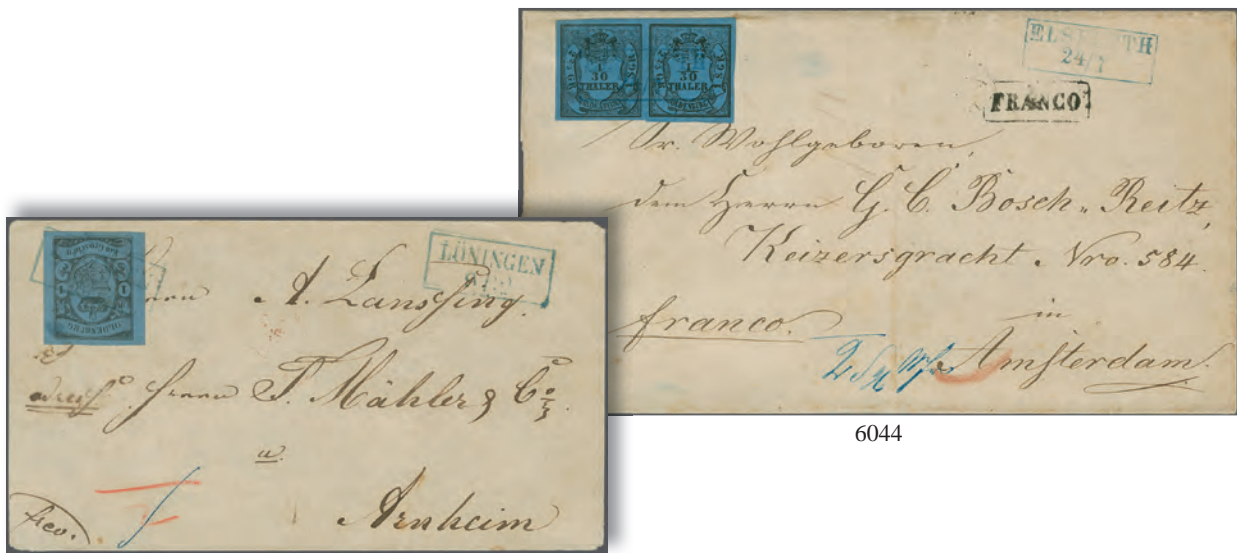 1
30
THALER
1
30
THALER
ELSFLETH
24/1
FRANCO
Sr. Wohlgeboren,
dem Herrn G. C. Bosch Reitz,
Keizersgracht Nro. 584.
in
franco.
Amsterdam.
6044
OLDENBURG
1 1
LÖNINGEN
A. Lanssing.
Herrn T. Mähler & Co
a
Arnheim
fco.